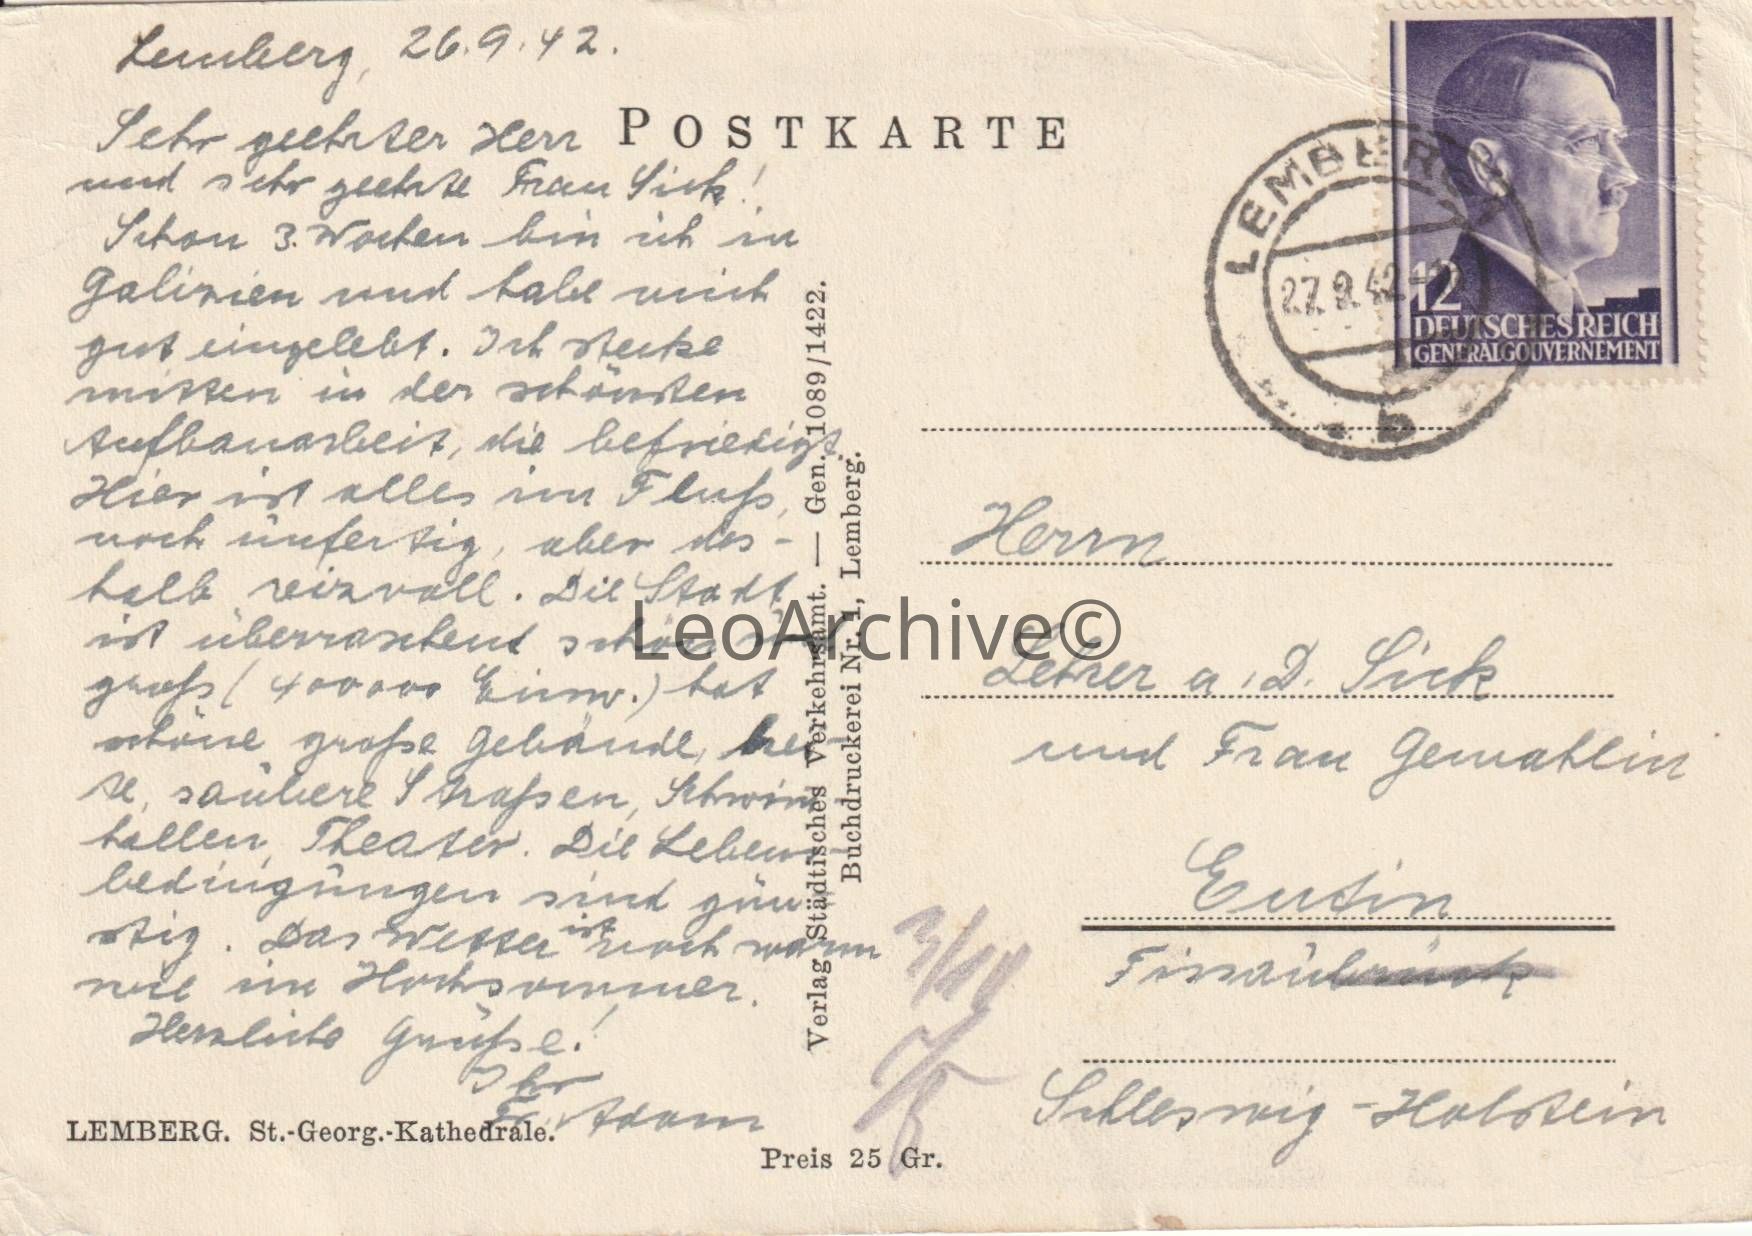 Lemberg, 26.9.42.
Sehr geehrter Herr
und sehr geehrte Frau Sick!
Schon 3 Wochen bin ich in
Galizien und habe mich
gut eingelebt. Ich stecke
mitten in der schönsten
Aufbauarbeit, die befriedigt.
Hier ist alles im Fluß,
noch unfertig, aber des-
halb reizvoll. Die Stadt
ist überraschend schön und
groß (400000 Einw.) hat
schöne große Gebäude, brei-
te, saubere Straßen, Schwimm-
hallen, Theater. Die Lebens-
bedingungen sind gün-
stig. Das Wetter ist noch warm
wie im Hochsommer.
Herzliche Grüße!
Ihr
Fr. Adam
LEMBERG. St.-Georg.-Kathedrale.
POSTKARTE
Verlag Städtisches Verkehrsamt. — Gen. 1089/1422.
Buchdruckerei Nr. 1, Lemberg.
Preis 25 Gr.
LEMBERG
27.9.42
b
12
DEUTSCHES REICH
GENERALGOUVERNEMENT
Herrn
Lehrer a.D. Sick
und Frau Gemahlin
Eutin
Fissaubrück
Schleswig-Holstein
LeoArchive©